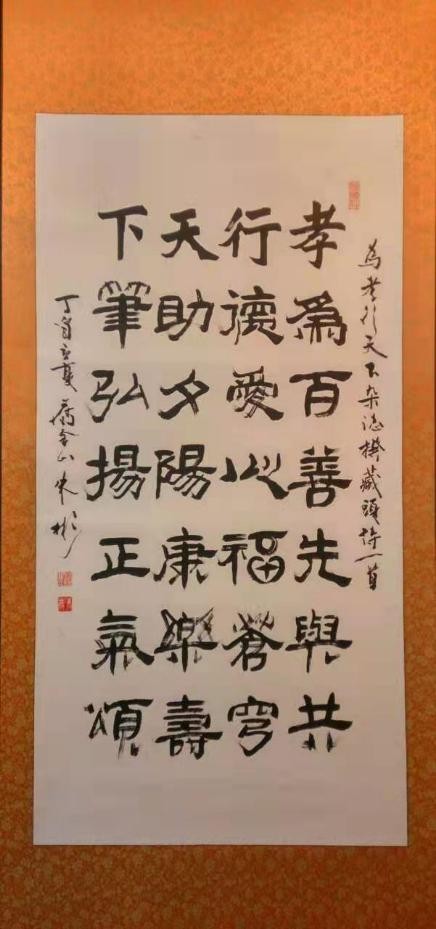 為孝行天下杂志撰藏頭诗一首
孝爲百善先與共
行德愛心福蒼穹
天助夕陽康樂壽
下筆弘揚正氣頌
丁酉立夏 金山 朱彬